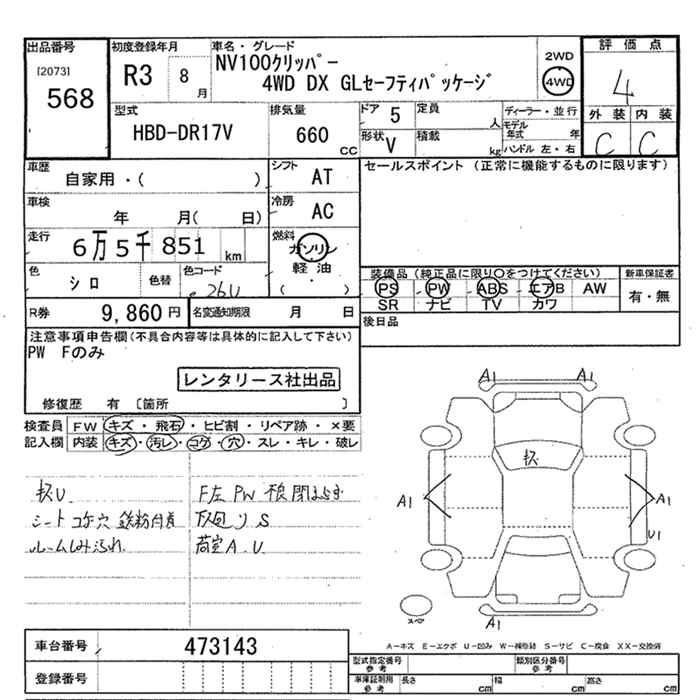 出品番号
[2073]
568
初度登録年月
R3 8月
車名・グレード
NV100クリッパー
4WD DX GLセーフティパッケージ
2WD
4WD
評価点
4
外装 内装
C C
型式
HBD-DR17V
排気量
660 CC
ドア 5
形状 V
定員 人
積載 kg
ディーラー・並行
モデル年式 年
ハンドル 左・右
車歴
自家用・( )
シフト AT
セールスポイント (正常に機能するものに限ります)
車検 年 月( 日)
冷房 AC
走行 6万5千851 km
燃料 ガソリン
軽油
( ・ )
色 シロ 色替 色コード 26U
装備品 (純正品に限り○をつけてください) 新車保証書
PS PW ABS エアB AW 有・無
SR ナビ TV カワ
R券 9,860円 名変通知期限 月 日
後日品
注意事項申告欄(不具合内容等は具体的に記入して下さい)
PW Fのみ
レンタリース社出品
修復歴 有 〔箇所 〕
検査員記入欄
FW キズ・飛石・ヒビ割・リペア跡・×要
内装 キズ・汚レ・コゲ・穴・スレ・キレ・破レ
キズU F左PW
シートコゲ穴 鉄粉付着 下廻りS
ルームしみ汚れ 荷室A.U
A1
A1
キズ
A1
A1
U1
スペア
A1
A－キズ E－エクボ U－凹み W－補修跡 S－サビ C－腐食 XX－交換済
車台番号 473143
登録番号
型式指定番号 参考 類別区分番号 参考
車庫証明用 参考 長さ cm 幅 cm 高さ cm